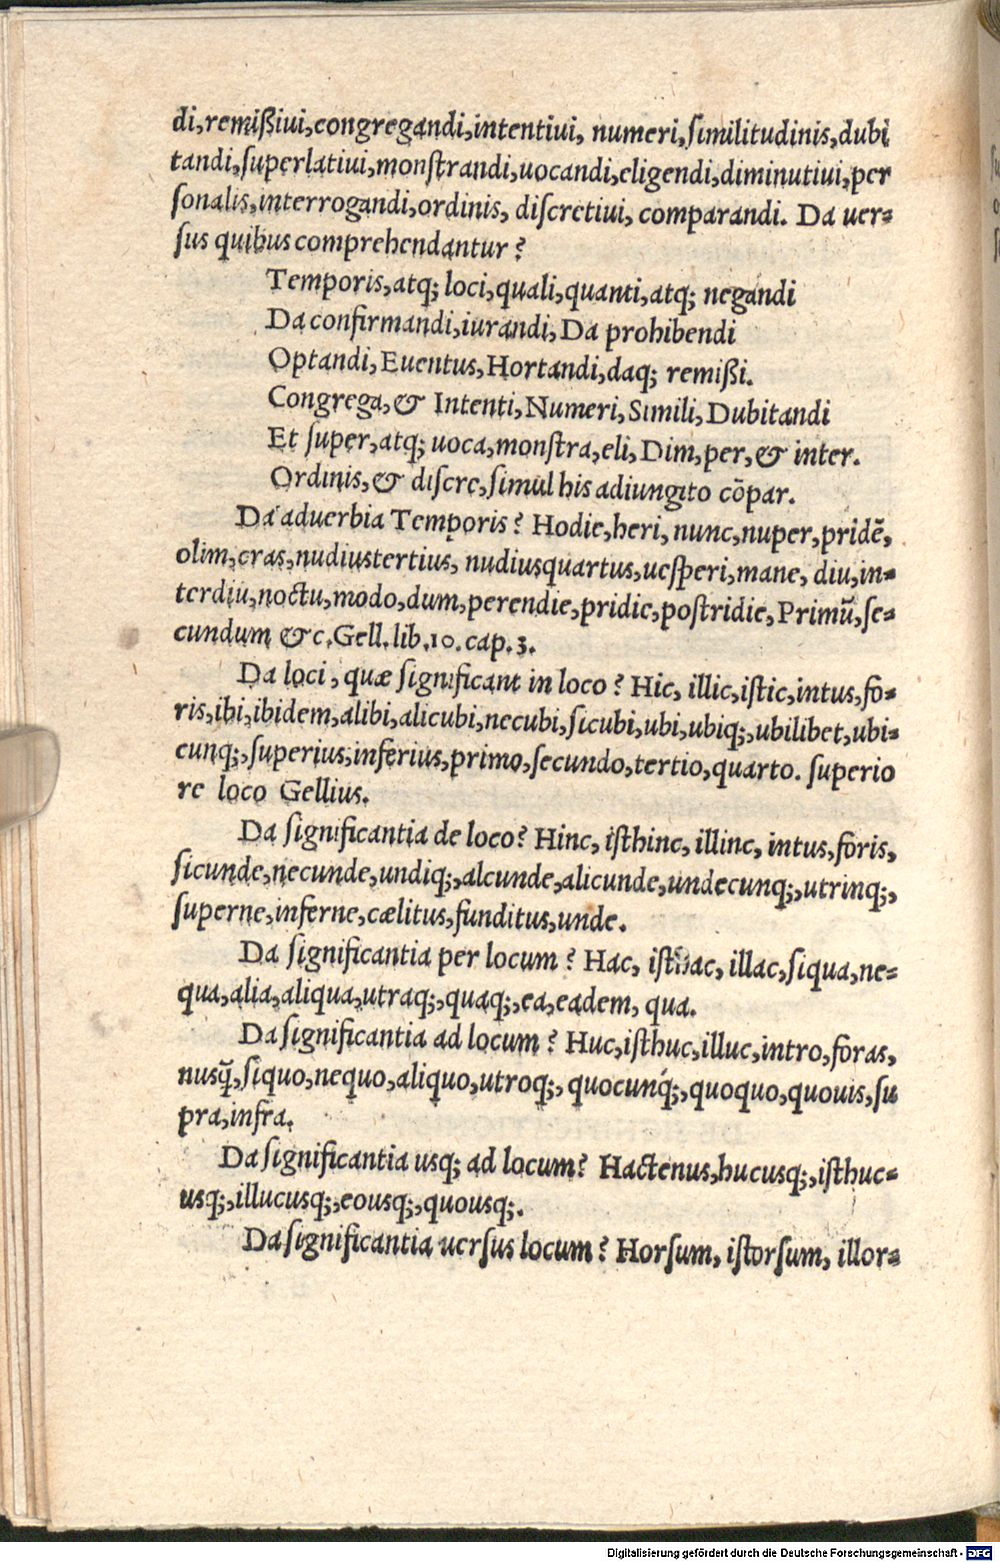 di,remißiui,congregandi,intentiui, numeri,ſimilitudinis,dubi
tandi,ſuperlatiui,monſtrandi,uocandi,eligendi,diminutiui,per
ſonalis,interrogandi,ordinis, diſcretiui, comparandi. Da uer-
ſus quibus comprehendantur?
Temporis,atq; loci,quali,quanti,atq; negandi
Da confirmandi,iurandi,Da prohibendi
Optandi,Euentus,Hortandi,daq; remißi.
Congrega,& Intenti,Numeri,Simili,Dubitandi
Et ſuper,atq; uoca,monſtra,eli,Dim,per,& inter.
Ordinis,& diſcre,ſimul his adiungito cōpar.
Da aduerbia Temporis? Hodie,heri,nunc,nuper,pridē,
olim,cras,nudiustertius, nudiusquartus,ueſperi,mane, diu,in-
terdiu,noctu,modo,dum,perendie,pridie,poſtridie,Primū,ſe-
cundum &c.Gell.lib.10.cap.3.
Da loci, quæ ſignificant in loco? Hic, illic,iſtic,intus,fo-
ris,ibi,ibidem,alibi,alicubi,necubi,ſicubi,ubi,ubiq;,ubilibet,ubi-
cunq;,ſuperius,inferius,primo,ſecundo,tertio,quarto. ſuperio
re loco Gellius.
Da ſignificantia de loco? Hinc, iſthinc, illinc, intus,foris,
ſicunde,necunde,undiq;,alcunde,alicunde,undecunq;,utrinq;,
ſuperne,inferne,cælitus,funditus,unde.
Da ſignificantia per locum? Hac, iſthac, illac,ſiqua,ne-
qua,alia,aliqua,utraq;,quaq;,ea,eadem, qua.
Da ſignificantia ad locum? Huc,iſthuc,illuc,intro,foras,
nusq̃,ſiquo,nequo,aliquo,utroq;, quocunq́;,quoquo,quouis,ſu
pra,infra.
Da ſignificantia usq; ad locum? Hactenus,hucusq;,iſthuc-
usq;,illucusq;,eousq;,quousq;.
Da ſignificantia uerſus locum? Horſum, iſtorſum, illor-
Digitalisierung gefördert durch die Deutsche Forschungsgemeinschaft - DFG